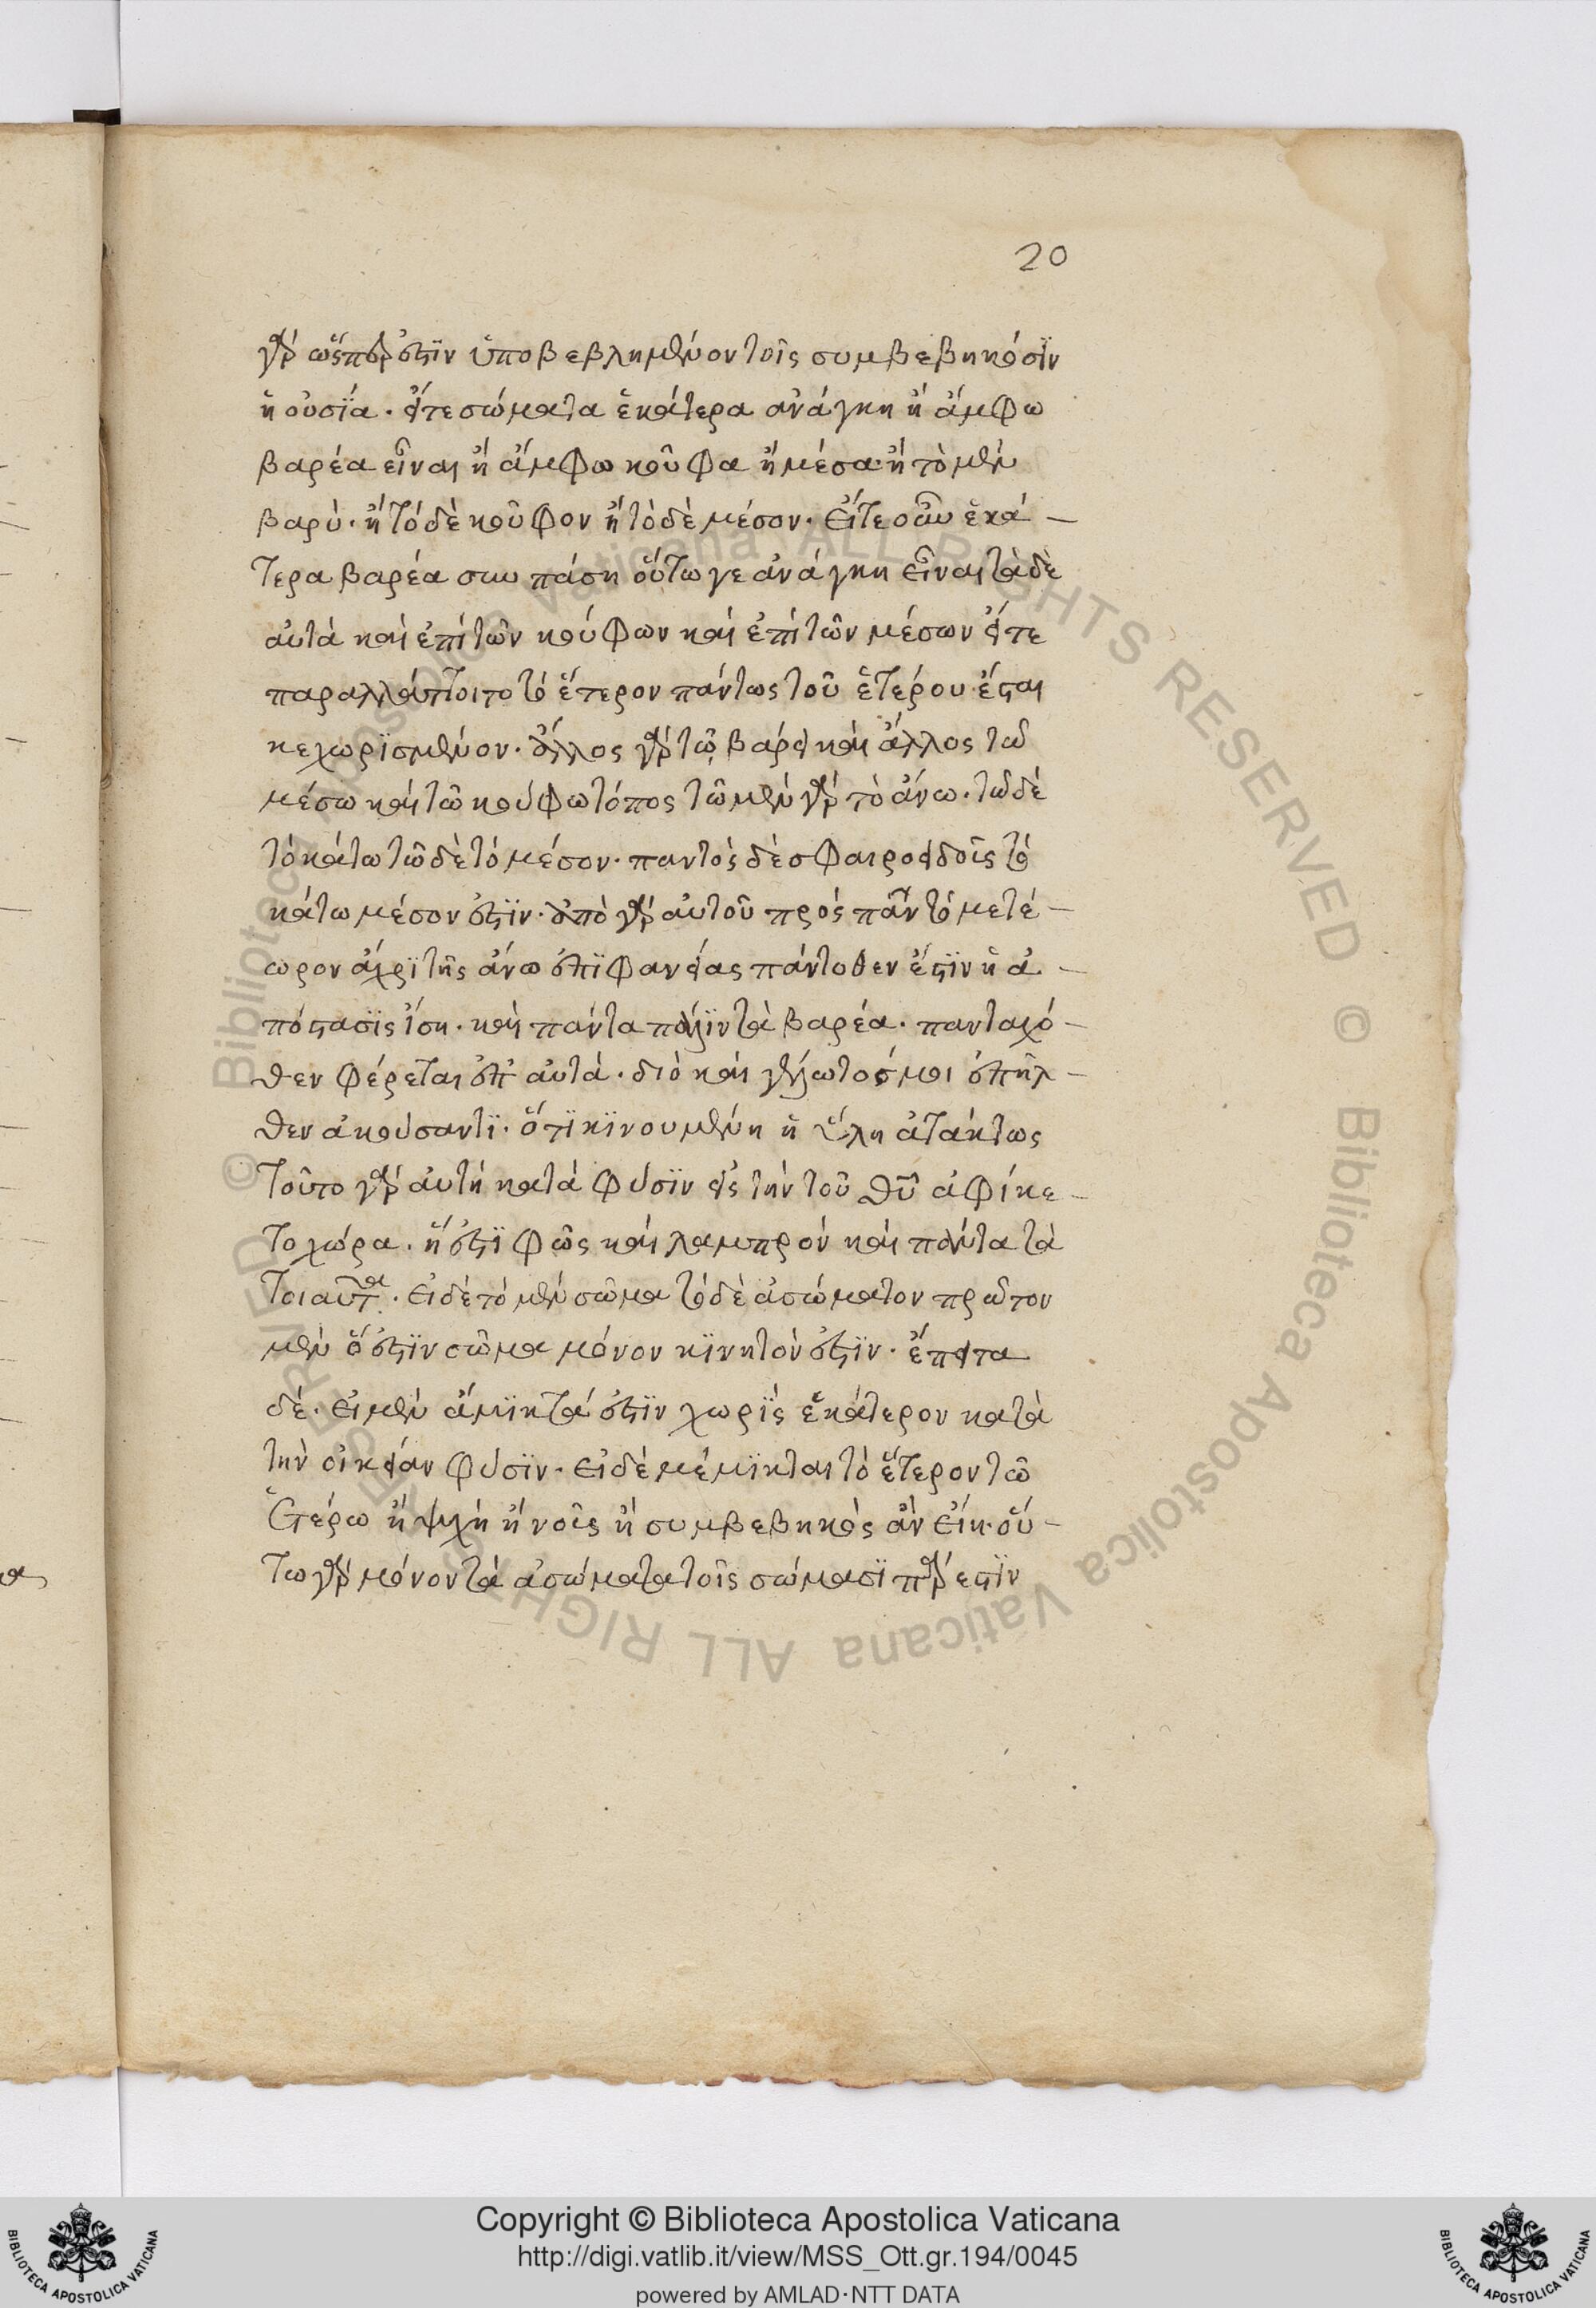 20
γὰρ ὥσπερ ἐστὶν ὑποβεβλημένον τοῖς συμβεβηκόσϊν
ἡ οὐσΐα. εἴτε σώματα ἑκάτερα ἀνάγκη ἢ ἄμφω
βαρέα εἶναι ἢ ἄμφω κοῦφα ἢ μέσα· ἢ τὸ μὲν
βαρὺ. ἢ τὸ δὲ κοῦφον ἢ τὸ δὲ μέσον. Εἴτε οὖν ἑκά –
τερα βαρέα σὺν πάση οὕτω γε ἀνάγκη εἶναι τὰ δὲ
αὐτὰ καὶ ἐπὶ τῶν κούφων καὶ ἐπὶ τῶν μέσων εἴτε
παραλλάττοιτο τὸ ἕτερον πάντως τοῦ ἑτέρου ἔσται
κεχωρϊσμένον. ἄλλος γὰρ τῷ βάρει καὶ ἄλλος τῶ
μέσω καὶ τῶ κούφω τόπος τῶ μὲν γὰρ τὸ ἄνω. τῶ δὲ
τὸ κάτω τῶ δὲ τὸ μέσον. παντὸς δὲ σφαιροειδοῖς τὸ
κάτω μέσον ἐστϊν. ἀπὸ γὰρ αὐτοῦ πρὸς πᾶν τὸ μετέ –
ωρον ἄχρϊ τῆς ἄνω ἐπϊφανείας πάντοθεν ἔστϊν ἡ ἀ –
πόστασϊς ἴση. καὶ πάντα πάλϊν τὰ βαρέα. πανταχό –
θεν φέρεται ἐπ' αὐτά. διὸ καὶ γέλωτός μοι ἐπῆλ –
θεν ἀκούσαντϊ. ὅτϊ κϊνουμένη ἡ ὕλη ἀτάκτως
τοῦτο γὰρ αὐτὴ κατὰ φύσϊν εἰς τὴν τοῦ θῦ ἀφίκε –
το χώρα. ἥ ἐστϊ φῶς καὶ λαμπρὸν καὶ πάντα τὰ
τοιαῦτα. Εἰ δὲ τὸ μὲν σῶμα τὸ δὲ ἀσώματον πρῶτον
μὲν ὅ ἐστϊν σῶμα μόνον κϊνητὸν ἐστϊν. ἔπειτα
δέ. εἰ μὲν ἄμϊκτα ἐστϊν χωρϊς ἑκάτερον κατὰ
τὴν οἰκείαν φύσϊν. εἰ δὲ μέμϊκται τὸ ἕτερον τῶ
Ἑτέρω ἢ ψυχὴ ἢ νοῖς ἢ συμβεβηκὸς ἂν εἴη. οὕ –
τω γὰρ μόνον τὰ ἀσώματα τοῖς σώμασϊ πάρεστϊν
Copyright © Biblioteca Apostolica Vaticana
http://digi.vatlib.it/view/MSS_Ott.gr.194/0045
powered by AMLAD·NTT DATA